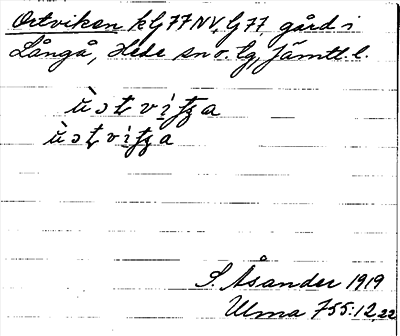 Ortviken kG77NV, G77 gård i
Långå, Hede sn o. lg, Jämtl. l.
S. Åsander 1919
Ulma 755:12,22